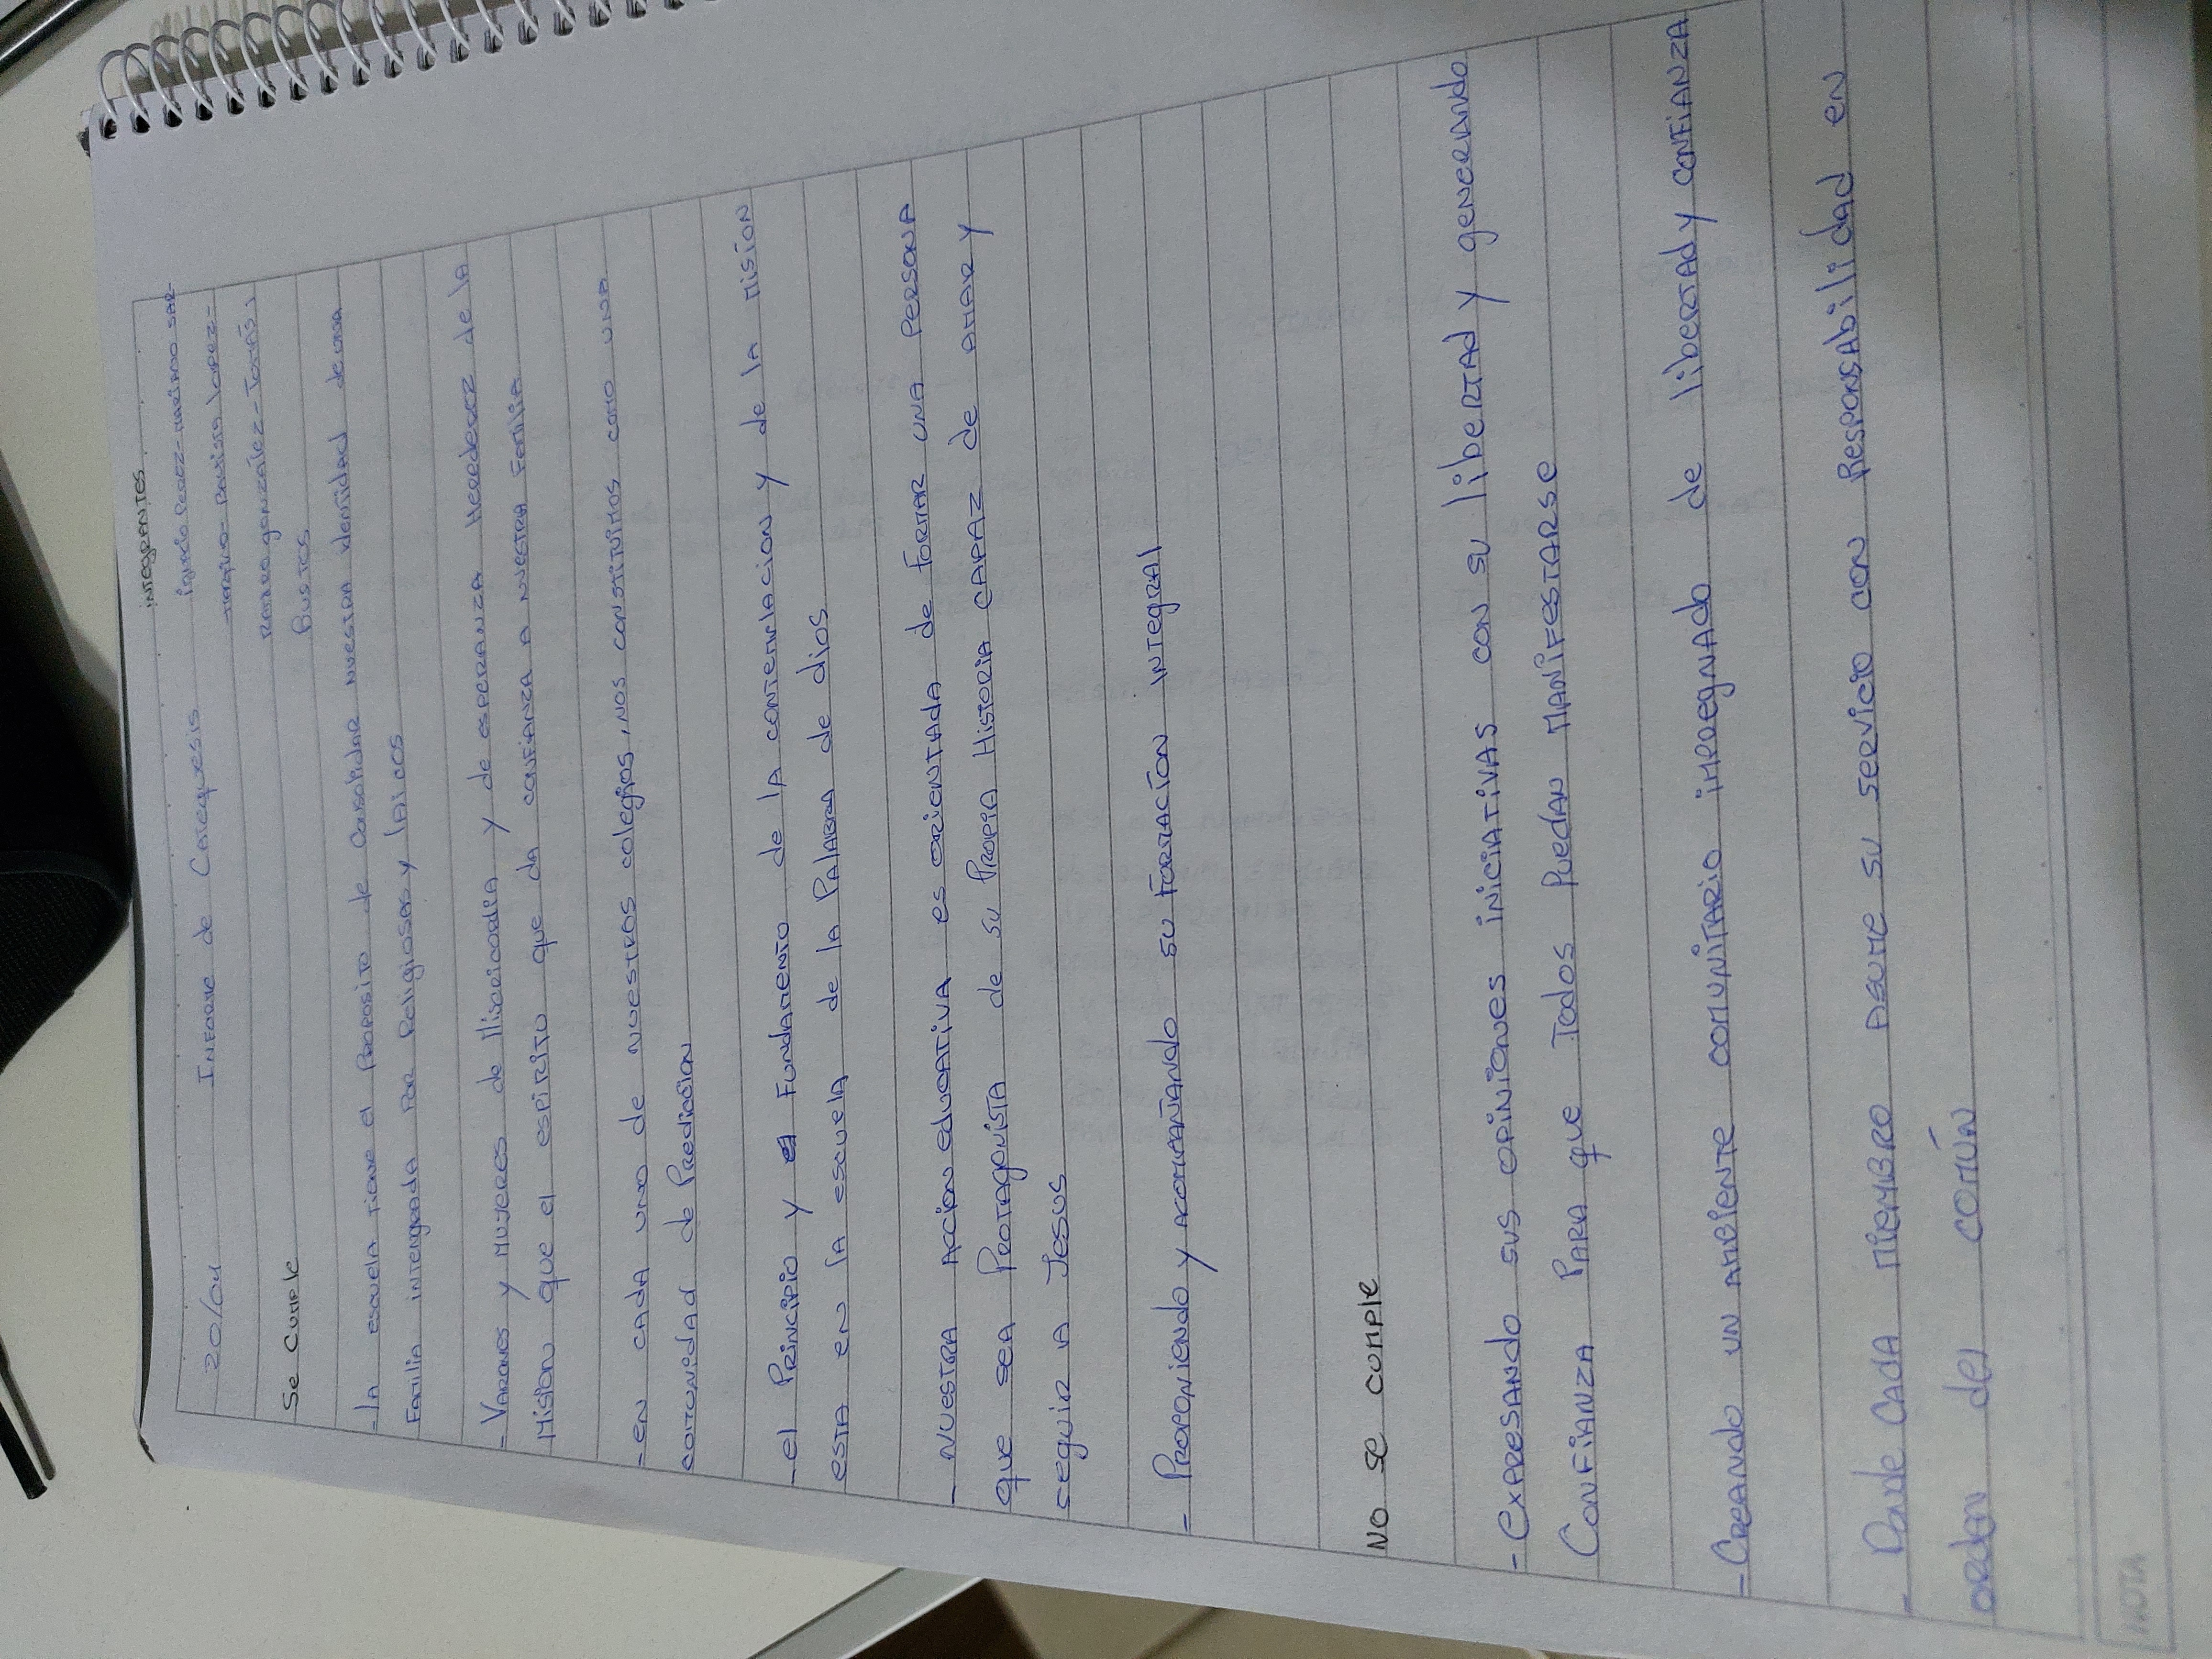 INTEGRANTES
20/04 INFORME de Catequesis
Ignacio Perez - MARIANO SAR-
- Bautista Lopez -
Se Cumple
RAMIRO gonzález - Tomás
Bustos
- la escuela tiene el Proposito de Consolidar NUESTRA identidad de una
FAMILIA intengrada POR Religiosas y lAicos
- VARONES y MUJERES de Misericordia y de esperanza Heredera de la
MISION que el espiritu que da confianza A NUESTRA FAMILIA
- en cada uno de nuestros colegios, nos constituimos como una
comunidad de Predicacion
- el Principio y el Fundamento de la contemplacion y de la MISIÓN
esta en la escuela de la Palabra de dios
- NUESTRA Accion educativa es orientada de Formar una PERSONA
que sea Protagonista de su Propia Historia CAPAZ de AMAR y
seguir a Jesus
- Proponiendo y acompañando su Formación integral
NO se cumple
- Expresando sus opiniones iniciativas con su libertad y generando
Confianza Para que Todos Puedan MANIFESTARSE
- Creando un ambiente comunitario impregnado de libertad y CONFIANZA
- Donde Cada miembro asume su servicio con Responsabilidad en
orden del común
NOTA